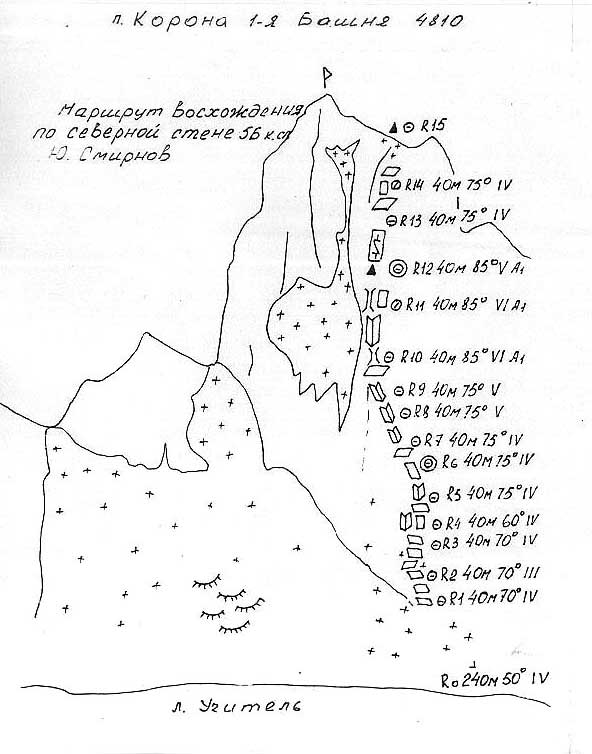 п. Корона 1-я Башня 4810
Маршрут восхождения
по северной стене 5Б к.сл
Ю. Смирнов
R15
R14 40м 75° IV
R13 40м 75° IV
R12 40м 85° V A1
R11 40м 85° VI A1
R10 40м 85° VI A1
R9 40м 75° V
R8 40м 75° V
R7 40м 75° IV
R6 40м 75° IV
R5 40м 75° IV
R4 40м 60° IV
R3 40м 70° IV
R2 40м 70° III
R1 40м 70° IV
R0 240м 50° IV
л. Учитель